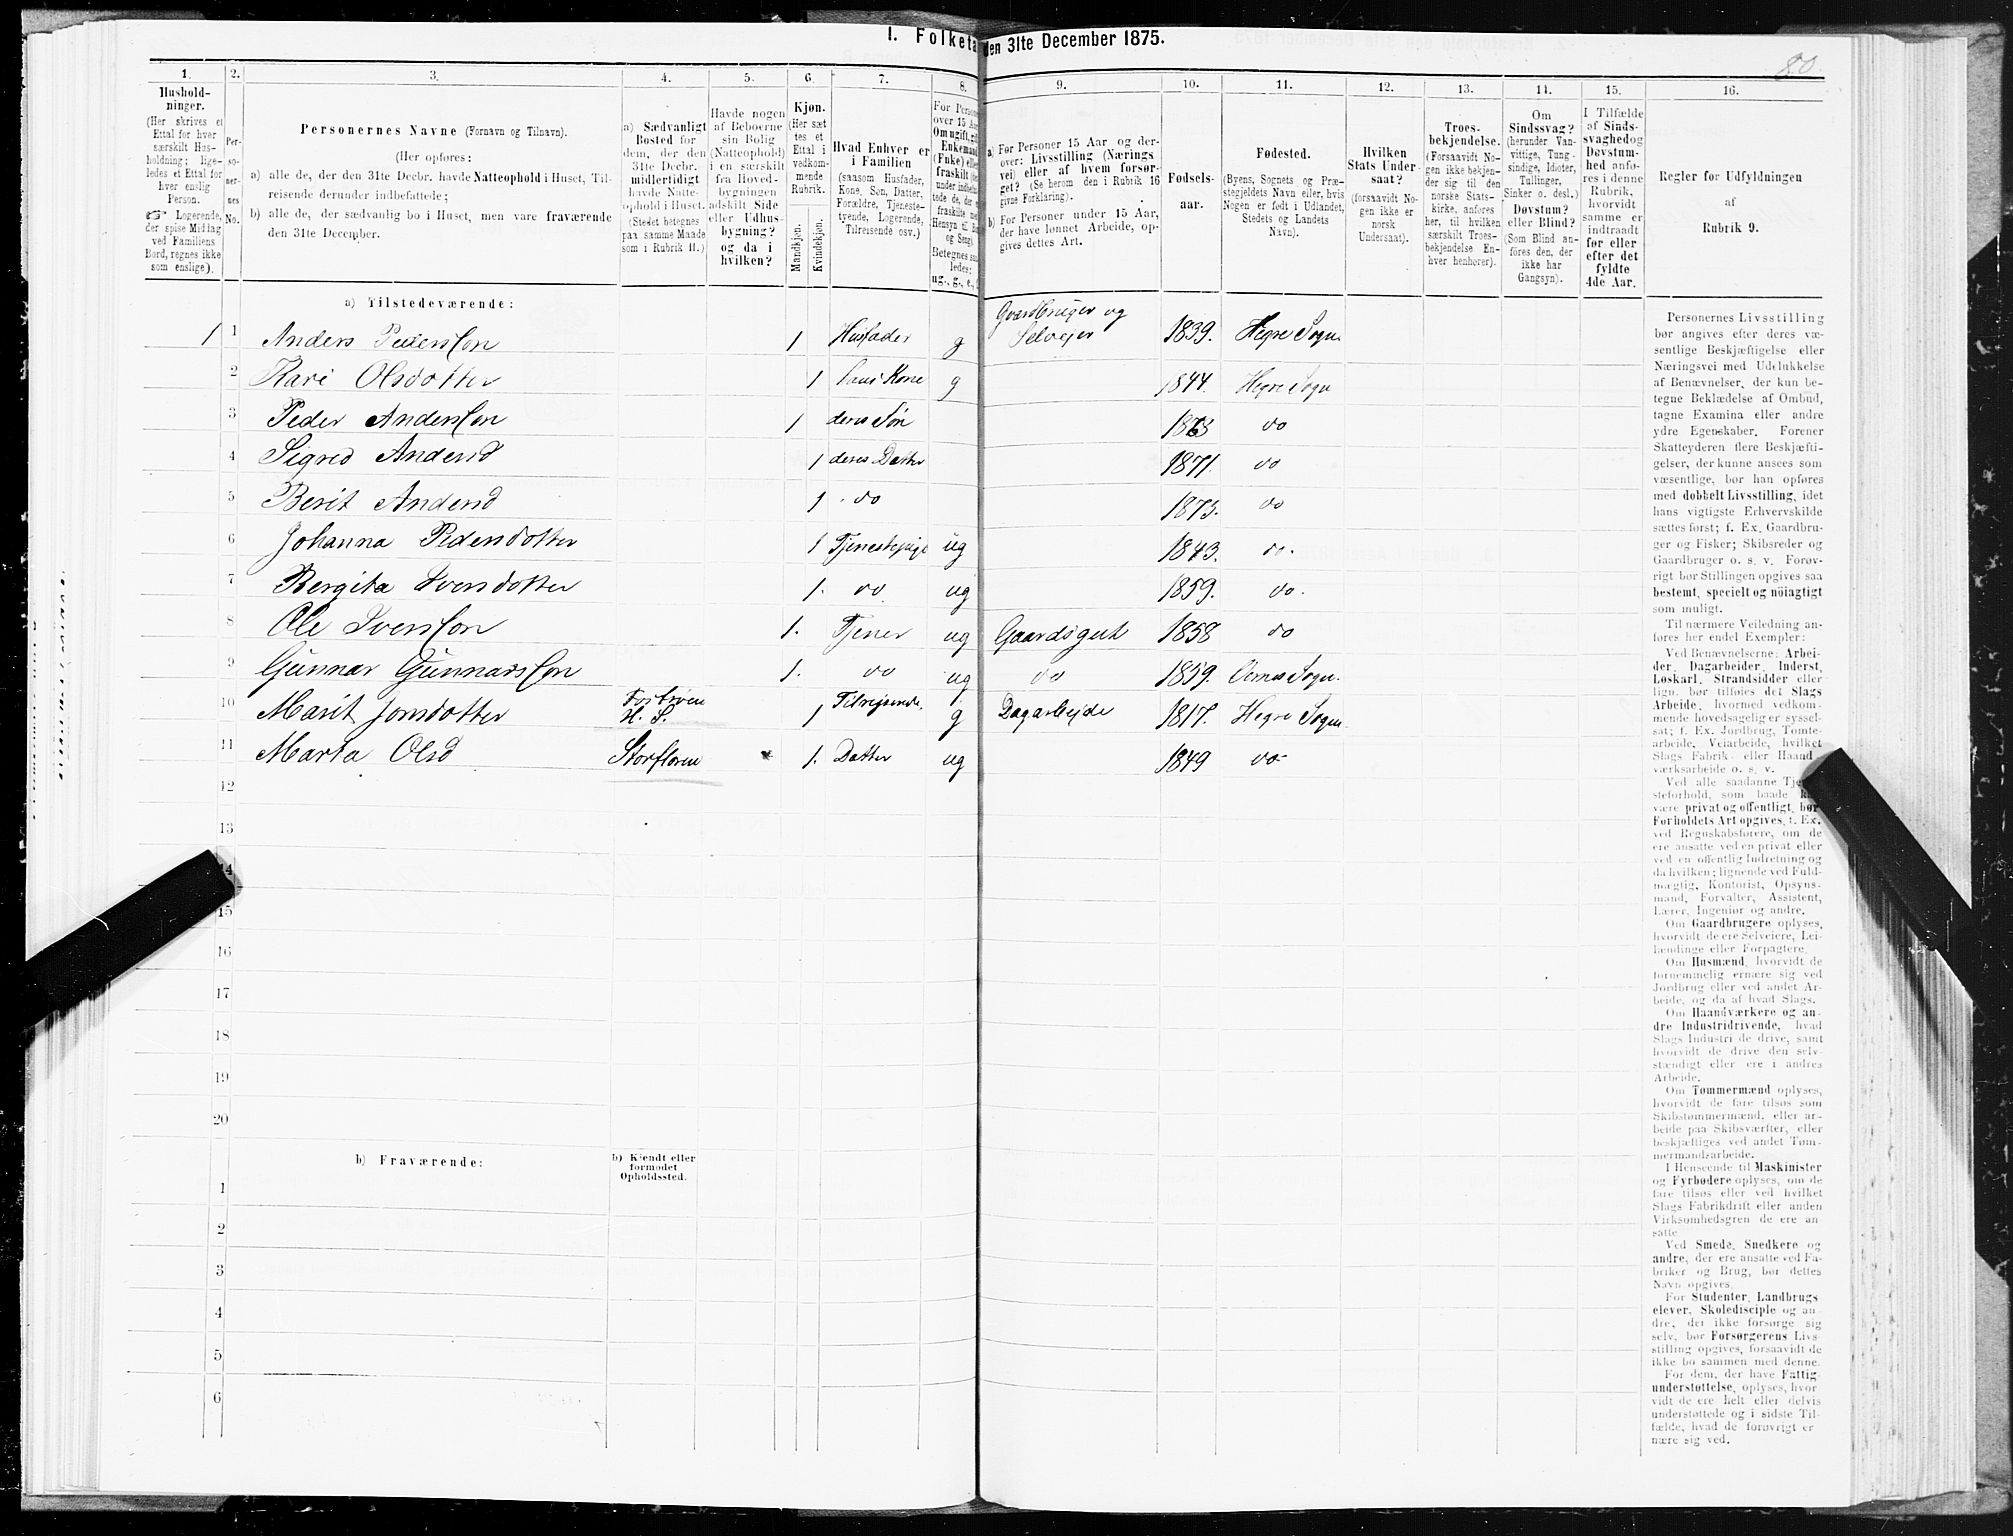 I. Folketæ
den 31te December 1875.
80
1. 2. 3. 4. 5. 6. 7. 8. 9. 10. 11. 12. 13. 14. 15. 16.
Hushold-
ninger.
(Her skrives et
Ettal for hver
særskilt Hus-
holdning; lige-
ledes et Ettal for
hver enslig
Person.
☞ Logerende,
der spise Middag
ved Familiens
Bord, regnes ikke
som enslige).
Per-
so-
ner-
nes
No.
Personernes Navne (Fornavn og Tilnavn).
(Her opføres:
a) alle de, der den 31te Decbr. havde Natteophold i Huset, Til-
reisende derunder indbefattede;
b) alle de, der sædvanlig bo i Huset, men vare fraværende
den 31te December.
a) Sædvanligt
Bosted for
dem, der den
31te Decbr.
midlertidigt
havde Natte-
ophold i Huset.
(Stedet betegnes
paa samme Maade
som i Rubrik 11.)
Havde nogen
af Beboerne
sin Bolig
(Natteophold)
i en særskilt
fra Hoved-
bygningen
adskilt Side
eller Udhus-
bygning?
og da i
hvilken?
Kjøn.
(Her sæt
tes et
Ettal i
vedkom-
mende
Rubrik.
Mandkjøn.
Kvindekjøn.
Hvad Enhver er
i Familien
(saasom Husfader,
Kone, Søn, Datter,
Forældre, Tjeneste-
tyende, Logerende,
Tilreisende osv.)
For Person
over 15 Aar
Om ugift, gift
Enkemand
(Enke) elle
fraskilt
Betegnes saa
ledes:
ug., g., e.,
a) For Personer 15 Aar og der-
over: Livsstilling (Nærings
vei) eller af hvem forsør-
get? (Se herom den i Rubrik 16
givne Forklaring).
b) For Personer under 15 Aar,
der have lønnet Arbeide, op-
gives dettes Art.
Fødsels-
aar.
Fødested.
(Byens, Sognets og Præ-
stegjeldets Navn eller, hvis
Nogen er født i Udlandet,
Stedets og Landets
Navn).
Hvilken
Stats Under
saat?
(forsaavidt No-
gen ikke er
norsk
Undersaat).
Troes-
bekjendelse.
(Forsaavidt No-
gen ikke bekjen-
der sig til den
norske Stats-
kirke, anføres
her, til hvilken
særskilt Troes-
bekjendelse En-
hver henhører).
Om
Sindssvag?
(herunder Van-
vittige, Tung-
sindige, Idioter,
Tullinger,
Sinker o. desl.)
Døvstum?
eller Blind?
(Som Blind an-
føres den, der
ikke har
Gangsyn).
I Tilfælde
af Sinds-
svaghed og
Døvstum-
hed anfø-
res i denne
Rubrik,
hvorvidt
samme er
indtraadt
før eller
efter det
fyldte
4de Aar.
Regler for Udfyldningen
af
Rubrik 9.
a) Tilstedeværende:
1 1 Anders Pedersson 1 Husfader g Gaardbruger og Selveier 1839. Hegre Sogn.
2 Kari Olsdotter 1 hans Kone g 1844. Hegre Sogn
3 Peder Andersson 1 deres Søn 1863 do
4 Sigred Andersd 1 deres Datter 1871. do
5 Berit Andersd 1 do 1873. do
6 Johanna Pedersdotter 1 Tjenestepige ug 1843. do.
7 Bergita Iversdotter 1. do ug 1859. do.
8 Ole Iversson 1. Tjener ug Gaardsgut 1858 do
9 Gunnar Gunnarsson 1. do ug do 1859. Sogn.
10 Marit Jonsdotter H. S. 1 Tilreisende. g Dagarbejde 1817. Hegre Sogn.
11 Marta Olsd Storfloren 1. Datter ug 1849 do
12
13
14
15
16
17
18
19
20
b) Fraværende:
b) Kjendt eller
formodet
Opholdssted.
1
2
3
4
5
6
Personernes Livsstilling
bør angives efter deres væ-
sentlige Beskjæftigelse eller
Næringsvei med Udelukkelse
af Benævnelser, der kun be-
tegne Beklædelse af Ombud,
tagne Examina eller andre
ydre Egenskaber. Forener
Skatteyderen flere Beskjæfti-
gelser, der kunne ansees som
væsentlige, bør han opføres
med dobbelt Livsstilling, idet
hans vigtigste Erhvervskilde
sættes først; f. Ex. Gaardbru-
ger og Fisker; Skibsreder og
Gaardbruger o. s. v. Forøv-
rigt bør Stillingen opgives saa
bestemt, specielt og nöiagtigt
som muligt.
Til nærmere Veiledning an-
føres her endel Exempler:
Ved Benævnelserne: Arbei-
der, Dagarbeider, Inderst,
Løskarl, Strandsidder eller
lign. bør tilføies det Slags
Arbeide, hvormed vedkom-
mende hovedsagelig er syssel-
sat; f. Ex. Jordbrug, Tomte-
arbeide, Veiarbeide, hvilket
Slags Fabrik- eller Haand-
værksarbeide o. s. v.
Ved alle saadanne Tje
steforhold, som baade
være privat og offentligt, bør
Forholdets Art opgives, f. Ex.
ved Regnskabsførere, om de
ere ansatte ved en privat eller
ved en offentlig Indretning og
da hvilken; lignende ved Fuld-
mægtig, Kontorist, Opsyns-
mand, Forvalter, Assistent,
Lærer, Ingeniør og andre.
Om Gaardbrugere oplyses,
hvorvidt de ere Selveiere, Lei-
lændinge eller Forpagtere.
Om Husmænd, hvorvidt de
fornemmelig ernære sig ved
Jordbrug eller ved andet Ar-
beide, og da af hvad Slags.
Om Haandværkere og an-
dre Industridrivende, hvad
Slags Industri de drive, samt
hvorvidt de drive den selv-
stændigt eller ere i andres
Arbeide.
Om Tømmermænd oplyses,
hvorvidt de fare tilsøs som
Skibstømmermænd, eller ar-
beide paa Skibsværfter, eller
beskjæftiges ved andet Tøm-
mermandsarbeide.
I Henseende til Maskinister
og Fyrbødere oplyses, om de
fare tilsøs eller ved hvilket
Slags Fabrikdrift eller anden
Virksomhedsgren de ere an-
satte
Ved Smede, Snedkere og
andre, der ere ansatte ved Fa-
briker og Brug, bør dettes
Navn opgives.
For Studenter, Landbrugs
elever, Skoledisciple og an-
dre, der ikke forsørge sig
selv, bør Forsørgerens Livs-
stilling opgives, forsaavidt de
ikke bo sammen med denne.
For dem, der have Fattig-
understøttelse, oplyses, hvor
vidt de ere helt eller delvis
understøttede og i sidste Til-
fælde, hvad de forøvrigt er
nære sig ved.